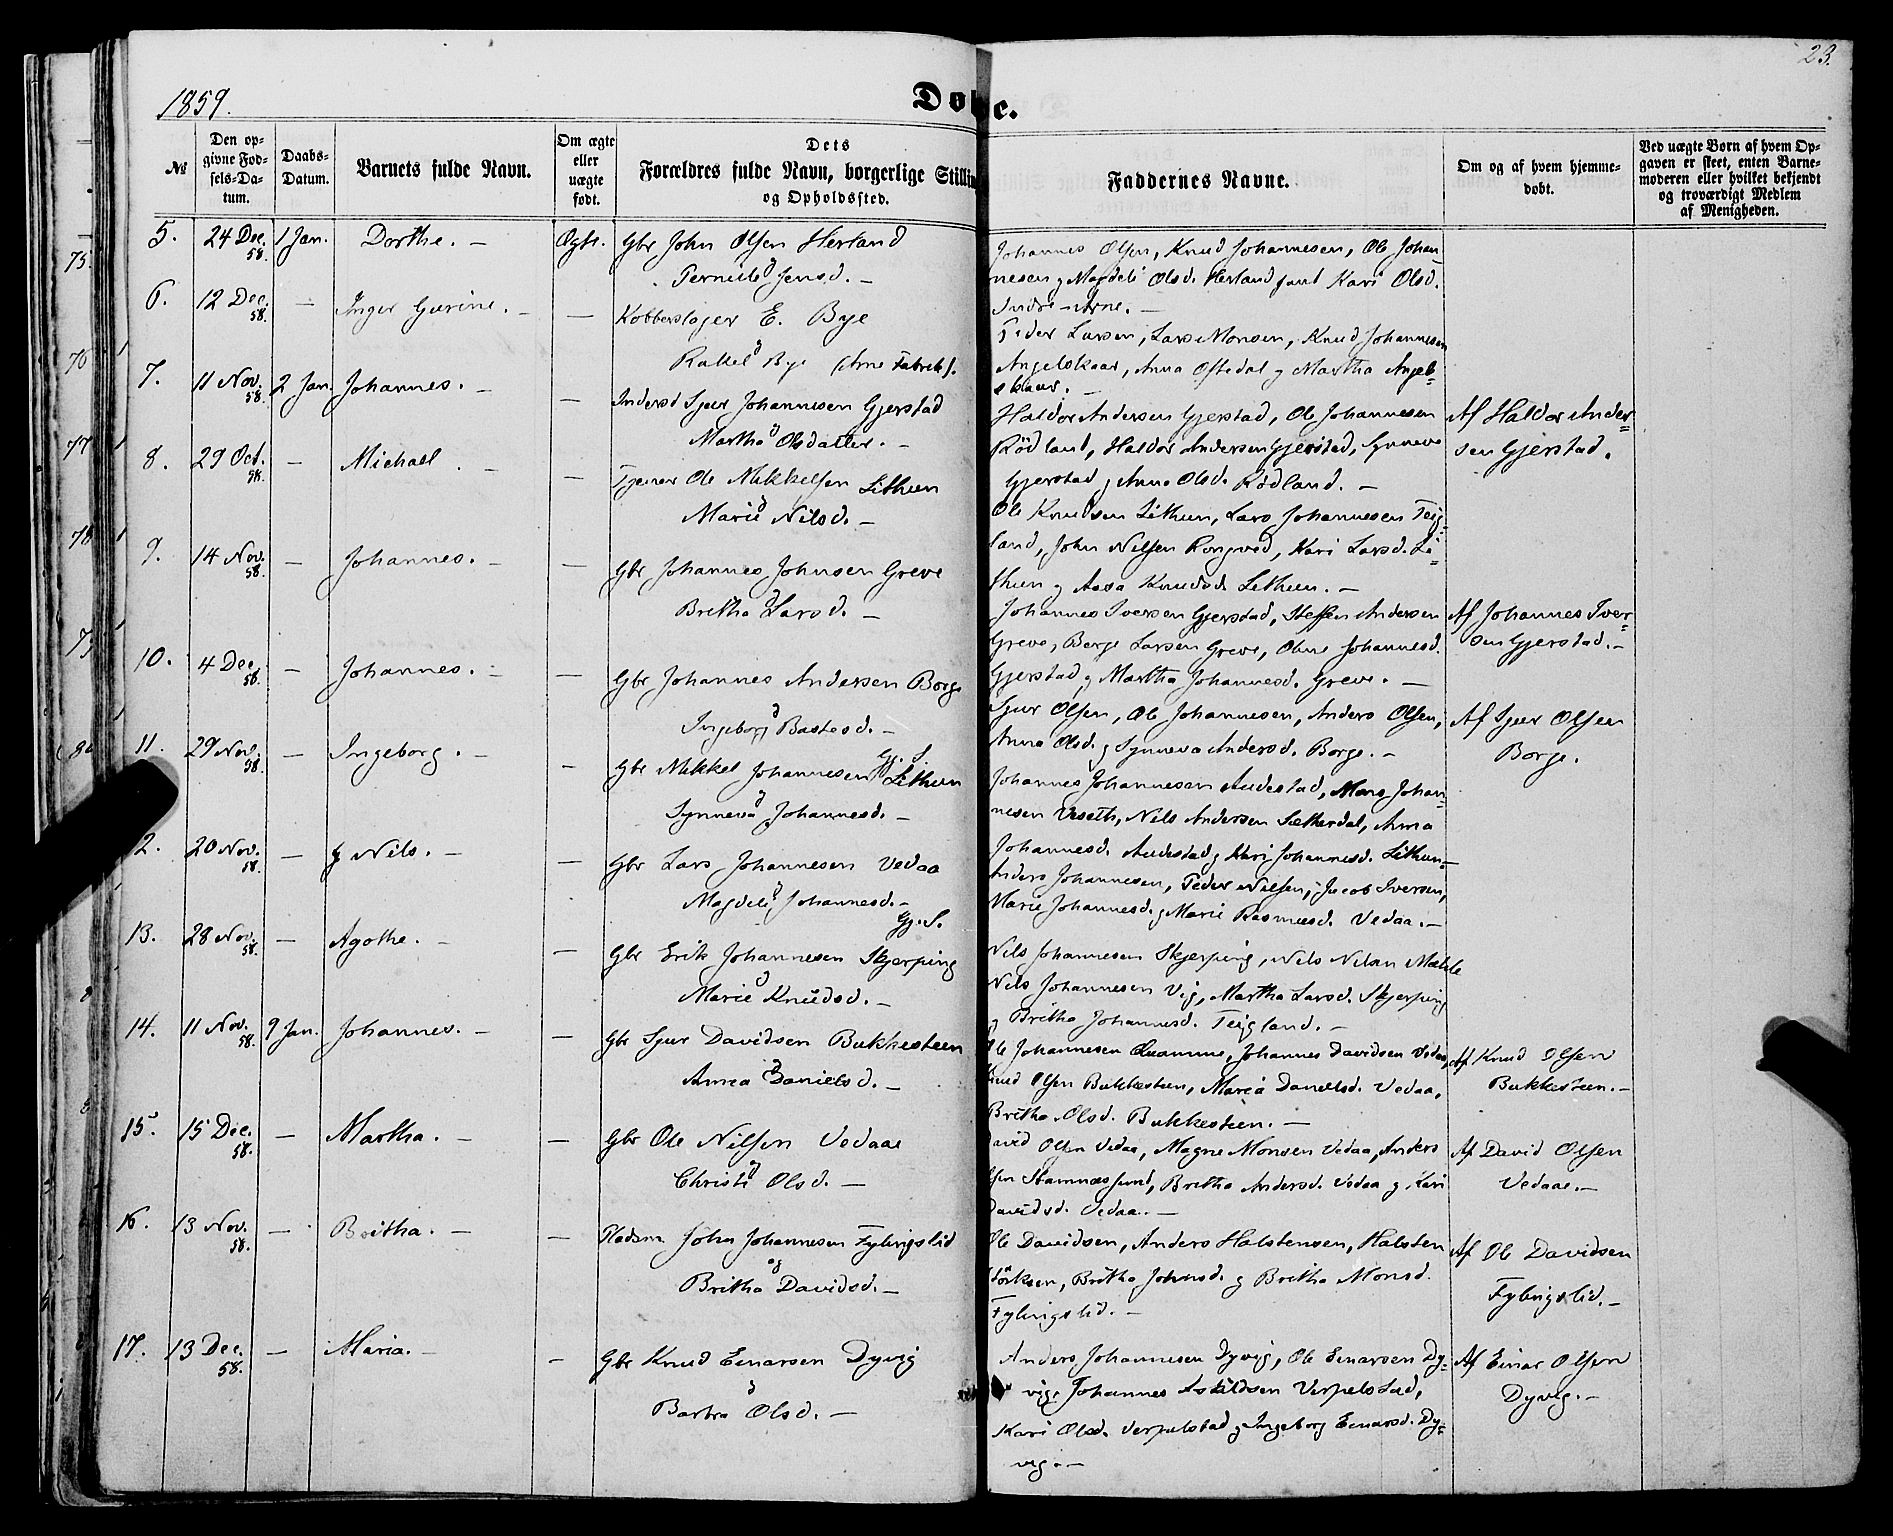 23.
1859.
Døbe.
№
Den op-
givne Fød-
sels-Da-
tum.
Daabs-
Datum.
Barnets fulde Navn.
Om ægte
eller
uægte
født.
Dets
Forældres fulde Navn, borgerlige Stillin
og Opholdssted.
Faddernes Navne.
Om og af hvem hjemme-
døbt.
Ved uægte Børn af hvem Op-
gaven er skeet, enten Barne-
moderen eller hvilket bekjendt
og troværdigt Medlem
af Menigheden.
5. 24 Dec. 58. 1 Jan. Dorthe. — Ægte. Gbr John Olsen Herland
Pernille Jensd. —
Johannes Olsen, Knud Johannesen, Ole Johan-
nesen og Magdeli Olsd. Herland samt Kari Olsd.
Indre-Arne. —
6. 12 Dec. 58. — Inger Gurine. — — Kobberslager E. Bye
Rakel Bye (Arne Fabrik).
Peder Larsen, Lars Monsen, Knud Johannesen
Angelskaar, Anna Oftedal og Martha Angel-
skaar. —
7. 11 Nov. 58. 2 Jan. Johannes. — — Inderst Sjur Johannesen Gjerstad
Martha Olsdatter. —
Haldor Andersen Gjerstad, Ole Johannesen
Rødland, Haldor Andersen Gjerstad, Synneva
Gjerstad og Anna Olsd. Rødland. —
Af Haldor Ander-
sen Gjerstad.
8. 29 Oct. 58. — Michael. — — Tjener Ole Mikkelsen Lithun
Marie Nilsd. —
Ole Knudsen Lithun, Lars Johannesen Teig-
land, John Nilsen Rongved, Kari Larsd. Li-
thun og Aasa Knudsd. Lithun. —
9. 14 Nov. 58. — Johannes. — — Gbr Johannes Johnsen Greve
Britha Larsd. —
Johannes Iversen Gjerstad, Steffen Andersen
Greve, Børge Larsen Greve, Oline Johannesd.
Gjerstad og Martha Johannesd. Greve. —
Af Johannes Iver-
sen Gjerstad. —
10. 4 Dec. 58. — Johannes. — — Gbr Johannes Andersen Borge
Ingeborg Bastesd. —
Sjur Olsen, Ole Johannesen, Anders Olsen,
Anna Olsd. og Synneva Andersd. Borge. —
Af Sjur Olsen
Borge.
11. 29 Nov. 58. — Ingeborg. — — Gbr Mikkel Johannesen Gj. S. Lithun
Synneva Johannesd. —
Johannes Johannesen Audestad, Mons Johan-
nesen Veseth, Nils Andersen Sætherdal, Anna
Johannesd. Audestad og Kari Johannesd. Lithun. —
2. 20 Nov. 58. — Nils. — — Gbr Lars Johannesen Vedaa
Magdeli Johannesd. —
Anders Johannesen, Peder Nilsen, Jacob Iversen,
Marie Johannesd. og Marie Rasmusd. Vedaa. —
13. 28 Nov. 58. — Agothe. — — Gbr Erik Johannesen Gj. S. Skjerping
Marie Knudsd. —
Nils Johannesen Skjerping, Nils Nilsen Mæhle
Nils Johannesen Vig, Martha Larsd. Skjerping
og Britha Johannesd. Teigland. —
14. 11 Nov. 58. 9 Jan. Johannes. — — Gbr Sjur Davidsen Bukkesteen
Anna Danielsd. —
Ole Johannesen Quamme, Johannes Davidsen Vedaa,
Knud Olsen Bukkesteen, Maria Danielsd. Vedaa,
Britha Olsd. Bukkesteen. —
Af Knud Olsen
Bukkesteen. —
15. 15 Dec. 58. — Martha. — — Gbr Ole Nilsen Vedaae
Christi Olsd. —
David Olsen Vedaa, Magne Monsen Vedaa, Anders
Olsen Stamnessund, Britha Andersd. Vedaa og Kari
Davidsd. Vedaa. —
Af David Olsen
Vedaae. —
16. 13 Nov. 58. — Britha. — — Pladsm John Johannesen Fylingslid
og
Britha Davidsd. —
Ole Davidsen, Anders Halstensen, Halsten
Størksen, Britha Johnsd. og Britha Monsd.
Fylingslid. —
Af Ole Davidsen
Fylingslid. —
17. 13 Dec. 58. — Maria. — — Gbr Knud Einarsen Dyvig
Barbra Olsd. —
Anders Johannesen Dyvig, Ole Einarsen Dy-
vig, Johannes Askildsen Verpelstad,
Kari Olsd. Verpelstad og Ingeborg Einarsd. Dy-
vig. —
Af Einar Olsen
Dyvig. —
75.
76
77
78
79
80